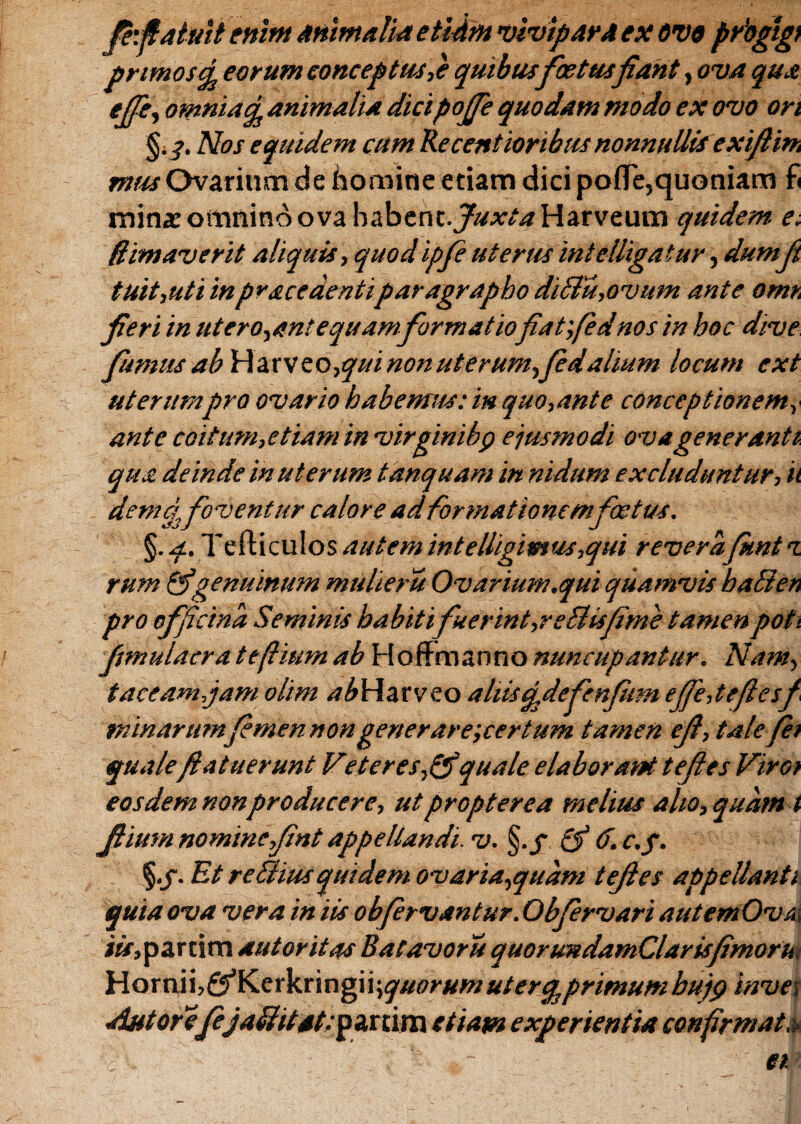 ſe:ſtatuit enim animalia etiam vivipara ex ovo progigi
primosq́ eorum conceptus, è quibus fœtus fiant, ova quæ
eſſe, omniaq́ animalia dici poſſe quodam modo ex ovo ori
§.3. Nos equidem cum Recentioribus nonnullis exiſtim
mus Ovarium de homine etiam dici poſſe, quoniam f
minæ omninò ova habent. Juxta Harveum quidem e
ſtimaverit aliquis, quod ipſe uterus intelligatur, dum ſt
tuit, uti in præcedenti paragrapho dictũ, ovum ante omn
fieri in utero, antequam formatio fiat; ſed nos in hoc dive
ſumus ab Harveo, qui non uterum, ſed alium locum ext
uterum pro ovario habemus: in quo, ante conceptionem,
ante coitum, etiam in virginibꝯ ejusmodi ova generanti
quæ deinde in uterum tanquam in nidum excluduntur, ii
demq́ foventur calore ad formationem fœtus.
§.4. Teſticulos autem intelligimus, qui reverà ſunt v
rum & genuinum mulierũ Ovarium. qui quamvis hacten
pro officinâ Seminis habiti fuerint, rectisſime tamen poti
ſimulacra teſtium ab Hoffmanno nuncupantur. Nam,
taceam, jam olim ab Harveo aliisq́ defenſum eſſe, teſtes f
minarum ſemen non generare; certum tamen eſt, tale ſe
quale ſtatuerunt Veteres, & quale elaborant teſtes Viror
eosdem non producere, ut propterea melius alio, quàm t
ſtium nomine, ſint appellandi. v. §.5 & 6. c.5.
§.5. Et rectius quidem ovaria, quàm teſtes appellanti
quia ova vera in iis obſervantur. Obſervari autem Ova
iis, partim autoritas Batavorũ quorundam Clarisſimoru
Hornii, & Kerkringii; quorum uterq́ primum hujꝯ inve
Autorẽ ſe jactitat: partim etiam experientia confirmat.
et